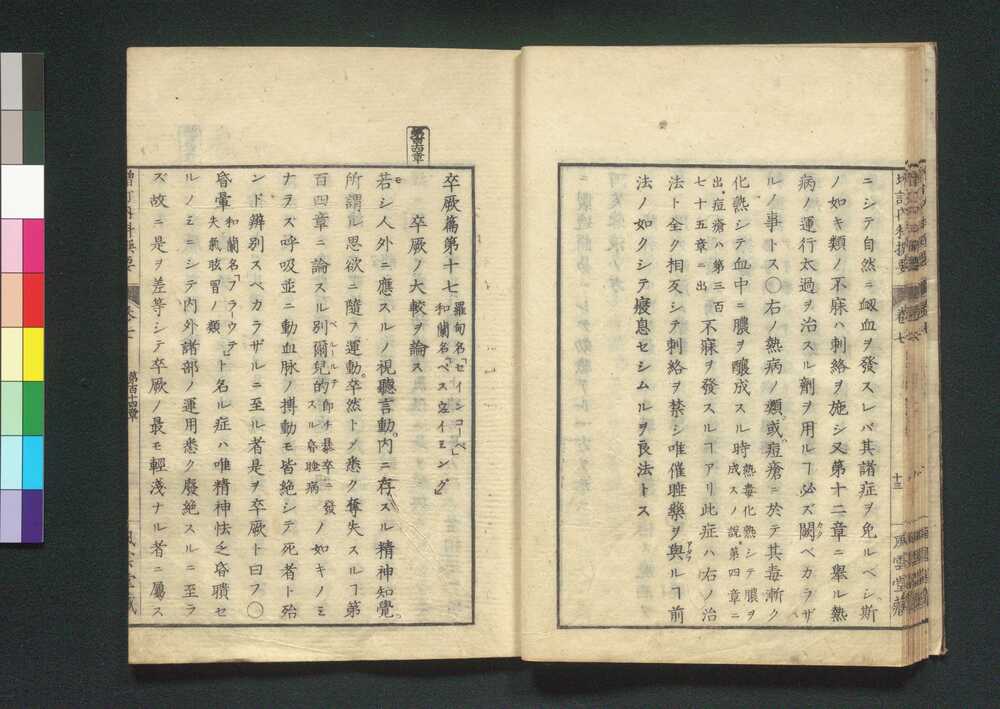 ニシテ自然ニ衂血ヲ發スレバ其諸症ヲ免ルベシ斯
ノ如キ類ノ不寐ハ刺絡ヲ施シ又第十二章ニ舉ル熱
病ノ運行太過ヲ治スル劑ヲ用ルヿ必ズ闕ベカラザ
ルノ事トス〇右ノ熱病ノ類或ハ痘瘡ニ於テ其毒漸ク
化熟シテ血中ニ膿ヲ釀成スル時熱毒化熟シテ膿ヲ
成スノ説第四章ニ
出痘瘡ハ第三百
七十五章ニ出
不寐ヲ發スルヿアリ此症ハ右ノ治
法ト全ク相反シテ刺絡ヲ禁シ唯催睡藥ヲ與ルヿ前
法ノ如クシテ寢息セシムルヲ良法トス
十三
風雲堂藏
第百四章
卒厥篇第十七
羅甸名「セインコーペ」
和蘭名「ベスウェイミング」
卒厥ノ大較ヲ論ス
若シ人外ニ應スルノ視聽言動内ニ存スル精神知覺
所謂ル思欲ニ隨フ運動卒然トメ悉ク奪失スルヿ第
百四章ニ論スル別爾兒的
即チ暴卒ニ發
スル昏睡病
ノ如キノミ
ナラズ呼吸並ニ動血脉ノ搏動モ皆絶シテ死者ト殆
ンド辨別スベカラザルニ至ル者是ヲ卒厥ト曰フ〇
昏暈
和蘭名「フラーウテ」
失氣眩冒ノ類
ト名ル症ハ唯精神怯乏昏聵セ
ルノミニシテ内外諸部ノ運用悉ク廢絶スルニ至ラ
ズ故ニ是ヲ差等シテ卒厥ノ最モ輕淺ナル者ニ屬ス
第百十四章